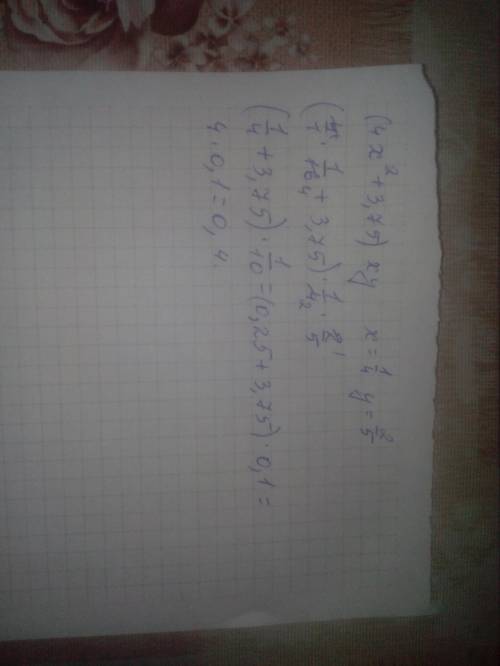 (4x² + 3,75) xy   x = 1/4   y = 2/5
(4/1 · 1/16 4 + 3,75) · 1/4 2 · 2 1/5
(1/4 + 3,75) · 1/10 = (0,25 + 3,75) · 0,1 =
4 · 0,1 = 0,4.